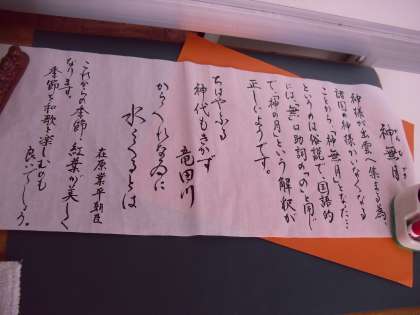 神無月
神様が出雲へ集まる為、
諸国の神様がいなくなる
ことから、「神無月」となった…
というのは俗説で、国語的
には「無」は助詞の「の」と同じ
で、「神の月」という解釈が
正しいようです。
ちはやふる
神代もきかず
竜田川
からくれなゐに
水くくるとは
在原業平朝臣
これからの季節、紅葉が美しく
なります。
季節と和歌を楽しむのも
良いでしょう。